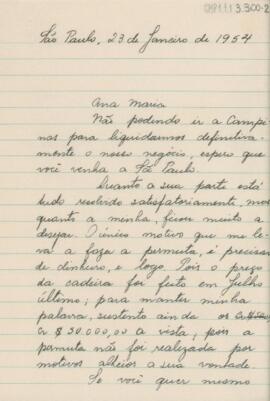 São Paulo, 23 de Janeiro de 1954
Ana Maria
Não podendo ir a Campi
nas para liquidarmos definitiva-
mente o nosso negócio, espero que
você venha a São Paulo.
Quanto a sua parte está
tudo resolvido satisfatoriamente, mas
quanto a minha, ficou muito a
desejar. O único motivo que me le-
va a fazer a permuta, é precisar
de dinheiro, e logo. Pois o preço
da cadeira foi feito em Julho
último; para manter minha
palavra, sustento ainda os
Cr $30.000,00 a vista; pois a
permuta não foi realizada por
motivos alheios a sua vontade.
Se você quer mesmo